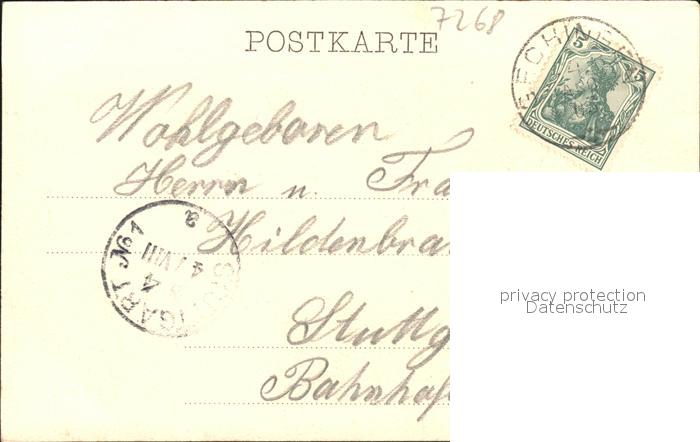 7268
POSTKARTE
5 5
DEUTSCHES REICH
HECHINGEN
Wohlgeboren
Herrn u. Fra
Hildenbra
Stuttg
Bahnhof
STUTTGART No 1
privacy protection
Datenschutz